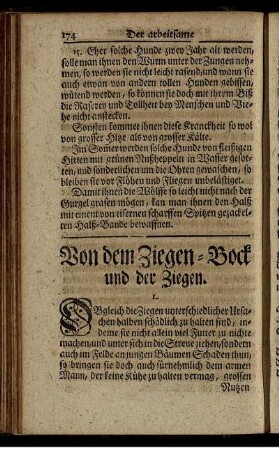 174 Der arbeitsame
15. Eher solche Hunde zwey Jahr alt werden,
solle man ihnen den Wurm unter der Zungen neh-
men, so werden sie nicht leicht rasend, und wann sie
auch etwan von andern tollen Hunden gebissen,
wütend werden, so können sie doch mit ihrem Biß
die Raserey und Tollheit bey Menschen und Vie-
he nicht anstecken.
Sonsten kommet ihnen diese Kranckheit so wol
von grosser Hitze als von grosser Kälte.
Im Somer werden solche Hunde von fleissigen
Hirten mit grünen Nußheppeln in Wasser gesot-
ten, und sonderlichen um die Ohren gewaschen, so
bleiben sie vor Flöhen und Fliegen unbelästiget.
Damit ihnen die Wölffe so leicht nicht nach der
Gurgel grasen mögen, kan man ihnen den Halß
mit einem von eisernen scharffen Spitzen gezackel-
ten Halß-Bande bewaffnen.
Von dem Ziegen-Bock
und der Ziegen.
1.
OBgleich die Ziegen unterschiedlicher Ursa-
chen halben schädlich zu halten sind, in-
deme sie nicht allein viel Futer zu nichte
machen, und unter sich in die Streue ziehen, sondern
auch im Felde an jungen Bäumen Schaden thun,
so bringen sie doch auch fürnehmlich dem armen
Mann, der keine Kühe zu halten vermag, grossen
Nutzen